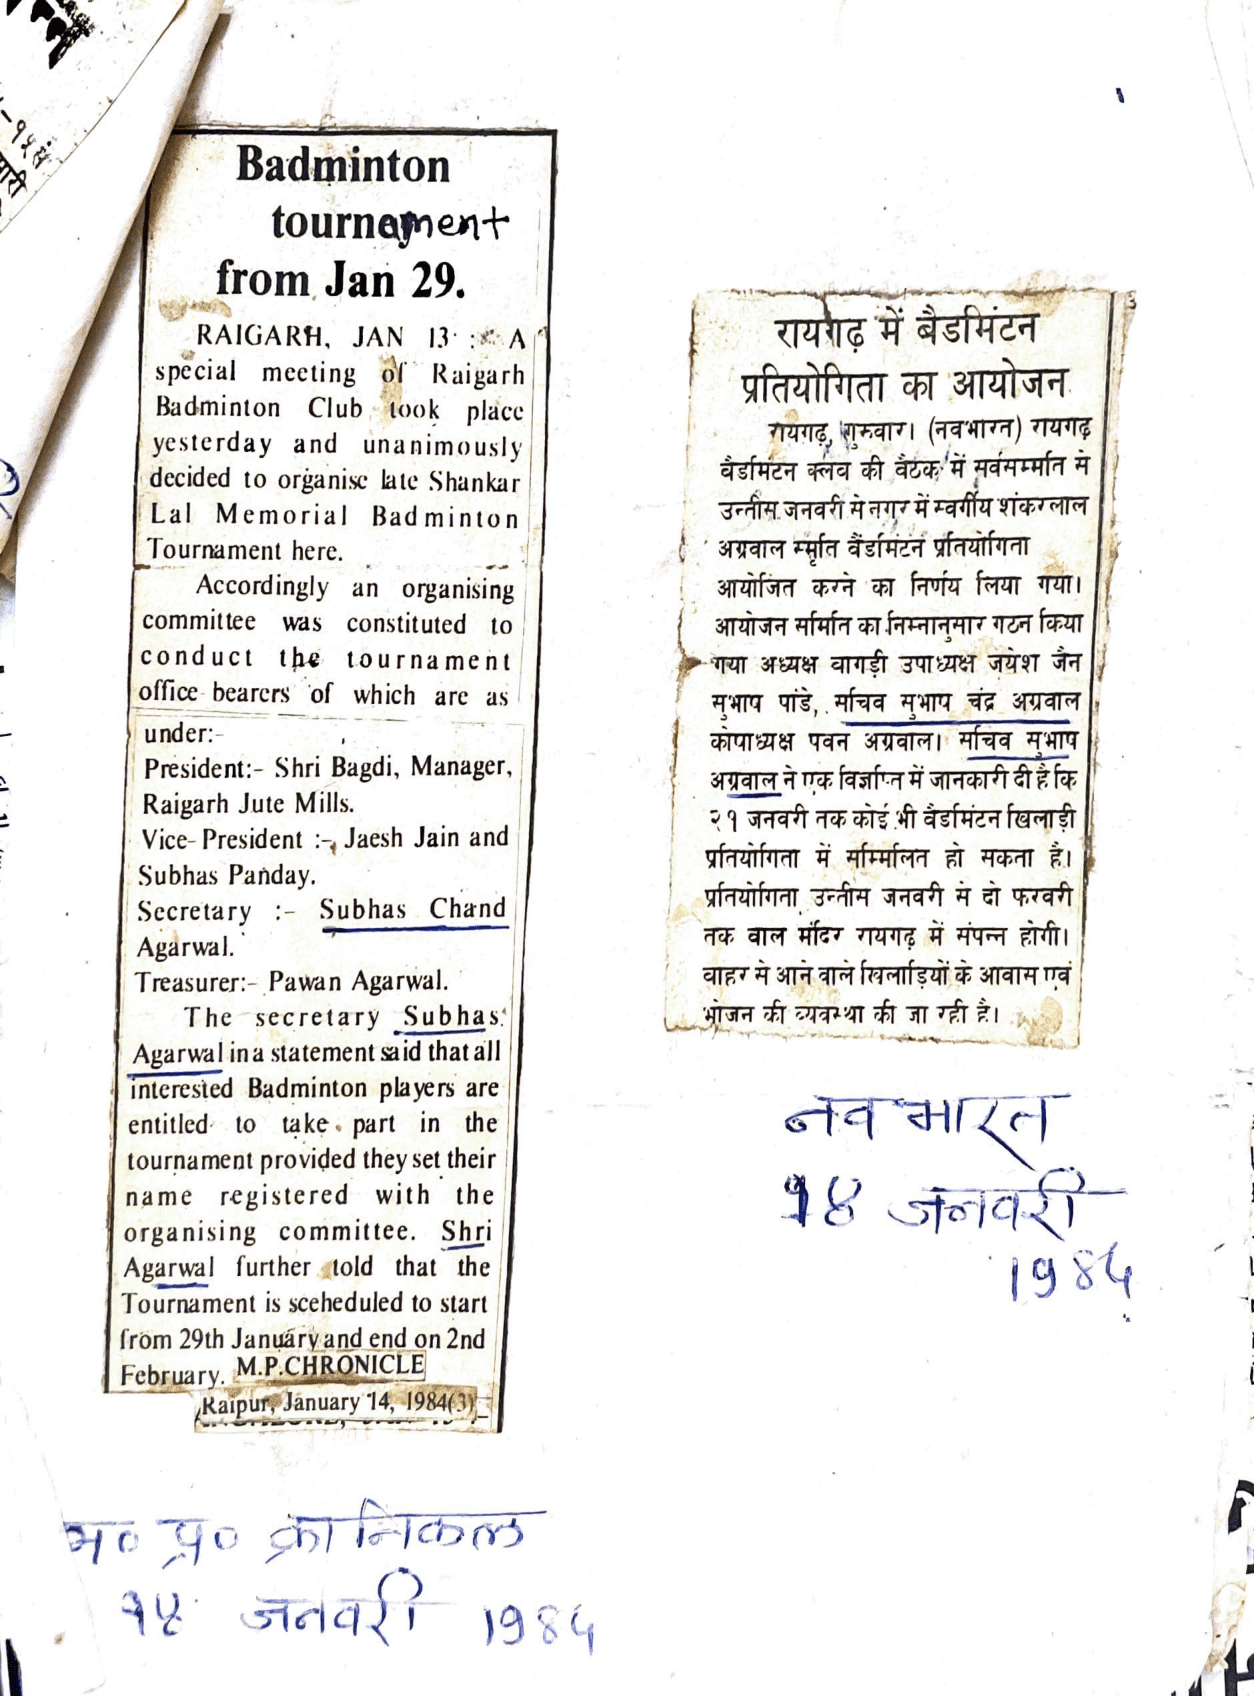 Badminton
tournament
from Jan 29.
RAIGARH, JAN 13 : A
special meeting of Raigarh
Badminton Club took place
yesterday and unanimously
decided to organise late Shankar
Lal Memorial Badminton
Tournament here.
Accordingly an organising
committee was constituted to
conduct the tournament
office bearers of which are as
under:-
President:- Shri Bagdi, Manager,
Raigarh Jute Mills.
Vice-President :- Jaesh Jain and
Subhas Panday.
Secretary :- Subhas Chand
Agarwal.
Treasurer:- Pawan Agarwal.
The secretary Subhas
Agarwal in a statement said that all
interested Badminton players are
entitled to take part in the
tournament provided they set their
name registered with the
organising committee. Shri
Agarwal further told that the
Tournament is sceheduled to start
from 29th January and end on 2nd
February. M.P.CHRONICLE
Raipur, January 14, 1984(3)
म० प्र० क्रानिकल
१४ जनवरी 1984
रायगढ़ में बैडमिंटन
प्रतियोगिता का आयोजन
रायगढ़, गुरुवार। (नवभारत) रायगढ़
बैडमिंटन क्लब की बैठक में सर्वसम्मति से
उन्तीस जनवरी से नगर में स्वर्गीय शंकरलाल
अग्रवाल स्मृति बैडमिंटन प्रतियोगिता
आयोजित करने का निर्णय लिया गया।
आयोजन समिति का निम्नानुसार गठन किया
गया अध्यक्ष बागड़ी उपाध्यक्ष जयेश जैन
सुभाष पांडे, सचिव सुभाष चंद्र अग्रवाल
कोषाध्यक्ष पवन अग्रवाल। सचिव सुभाष
अग्रवाल ने एक विज्ञप्ति में जानकारी दी है कि
२१ जनवरी तक कोई भी बैडमिंटन खिलाड़ी
प्रतियोगिता में सम्मिलित हो सकता है।
प्रतियोगिता उन्तीस जनवरी से दो फरवरी
तक बाल मंदिर रायगढ़ में संपन्न होगी।
बाहर से आने वाले खिलाड़ियों के आवास एवं
भोजन की व्यवस्था की जा रही है।
नवभारत
१४ जनवरी
1984